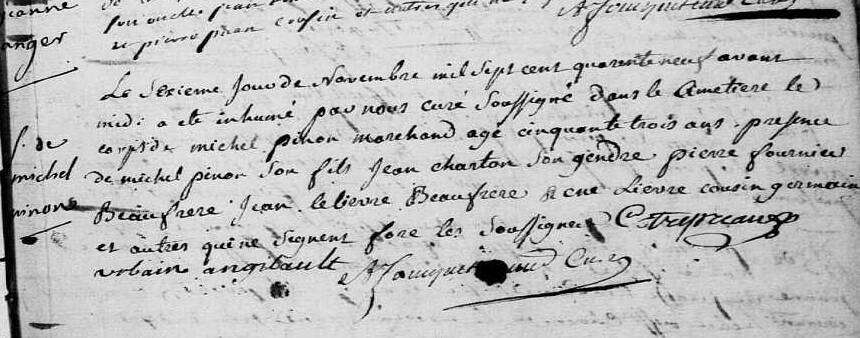 jeanne
anger
son oncle
re pierre pinon cousin et autres qui ne
Le Sixieme Jour de Novembre mil Sept cent quarente neuf avant
midi a eté inhumé par nous curé Soussigné dans le Cimetiere le
corps de michel pinon marchand agé cinquante trois ans presence
de michel pinon Son fils Jean charton Son gendre pierre fournier
Beaufrere Jean lelievre Beaufrere Rene Lievre cousin germain
et autres qui ne Signent fore les Soussignes
urbain angibault
s. de
michel
pinons